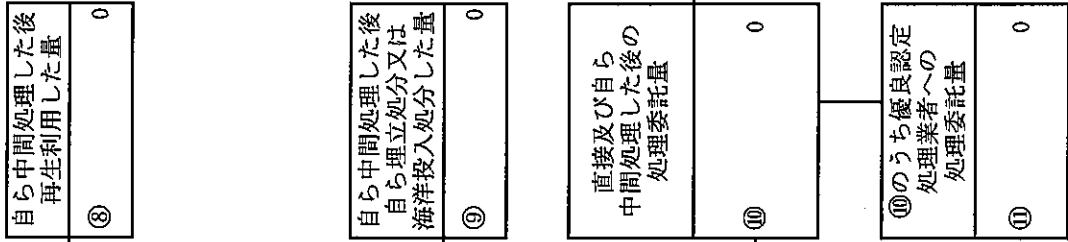 自ら中間処理した後
再生利用した量
⑧ 0
自ら中間処理した後
自ら埋立処分又は
海洋投入処分した量
⑨ 0
直接及び自ら
中間処理した後の
処理委託量
⑩ 0
⑩のうち優良認定
処理業者への
処理委託量
⑪ 0